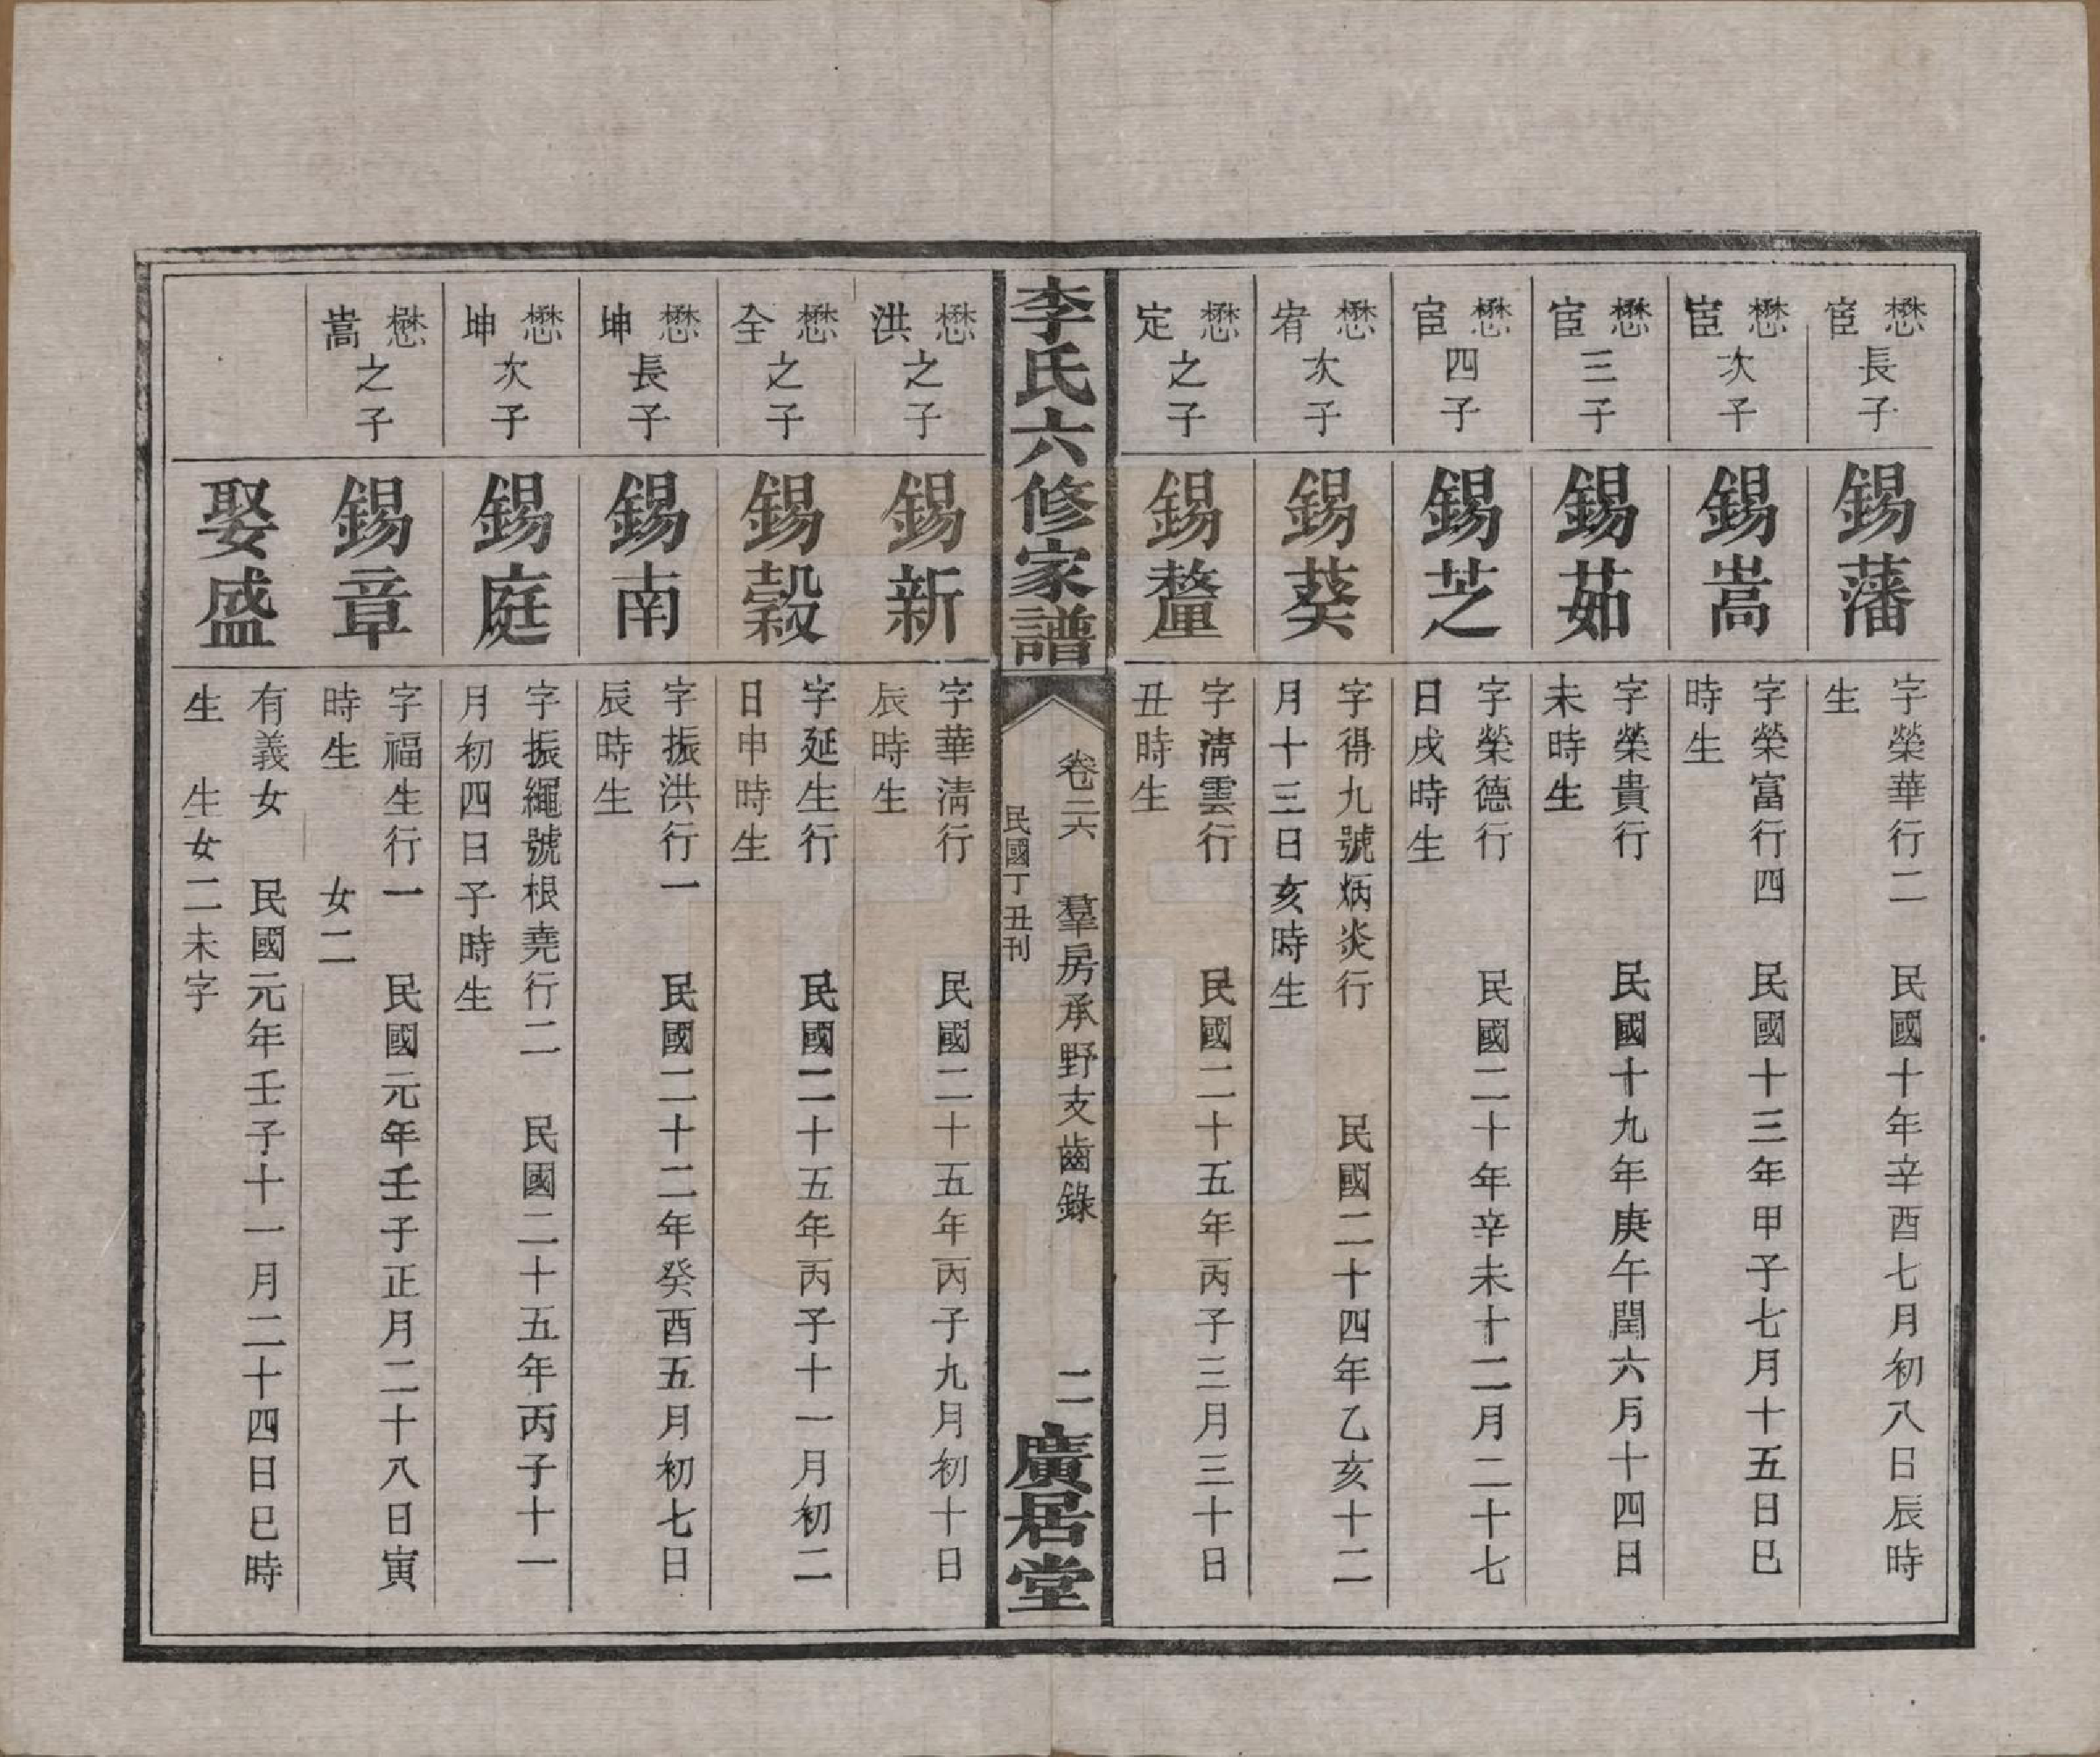 懋宦長子
錫藩
字榮華行二　民國十年辛酉七月初八日辰時
生
懋宦次子
錫嵩
字榮富行四　民國十三年甲子七月十五日巳
時生
懋宦三子
錫茹
字榮貴行　民國十九年庚午閏六月十四日
未時生
懋宦四子
錫芝
字榮德行　民國二十年辛未十二月二十七
日戌時生
懋宥次子
錫葵
字得九號炳炎行　民國二十四年乙亥十二
月十三日亥時生
懋定之子
錫釐
字清雲行　民國二十五年丙子三月三十日
丑時生
李氏六修家譜
卷二六　羣房承野支齒錄　二
民國丁丑刊
廣居堂
懋洪之子
錫新
字華清行　民國二十五年丙子九月初十日
辰時生
懋全之子
錫穀
字延生行　民國二十五年丙子十一月初二
日申時生
懋坤長子
錫南
字振洪行一　民國二十二年癸酉五月初七日
辰時生
懋坤次子
錫庭
字振繩號根堯行二　民國二十五年丙子十一
月初四日子時生
懋嵩之子
錫章
字福生行一　民國元年壬子正月二十八日寅
時生　女二
娶盛
有義女　民國元年壬子十一月二十四日巳時
生　生女二未字